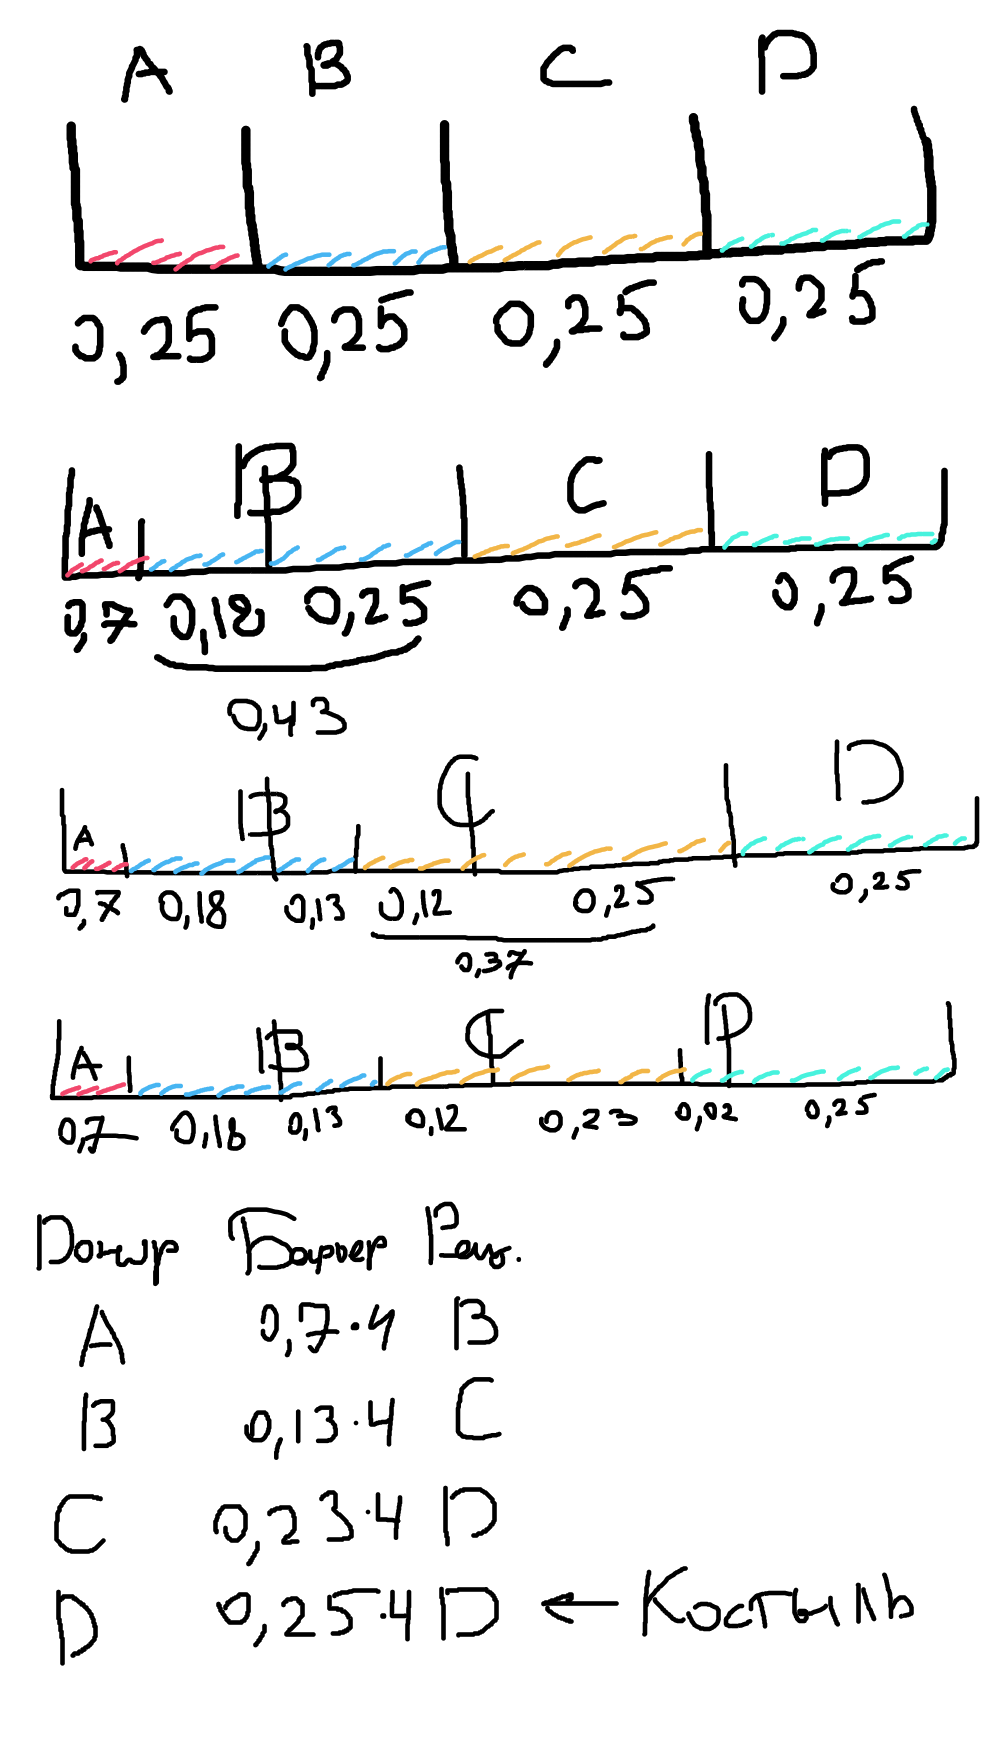 A B C D
0,25 0,25 0,25 0,25
A B C D
0,7 0,18 0,25 0,25 0,25
0,43
A B C D
0,7 0,18 0,13 0,12 0,25 0,25
0,37
A B C D
0,7 0,18 0,13 0,12 0,23 0,02 0,25
Донор Барьер Рец.
A 0,7·4 B
B 0,13·4 C
C 0,23·4 D
D 0,25·4 D ← Костыль